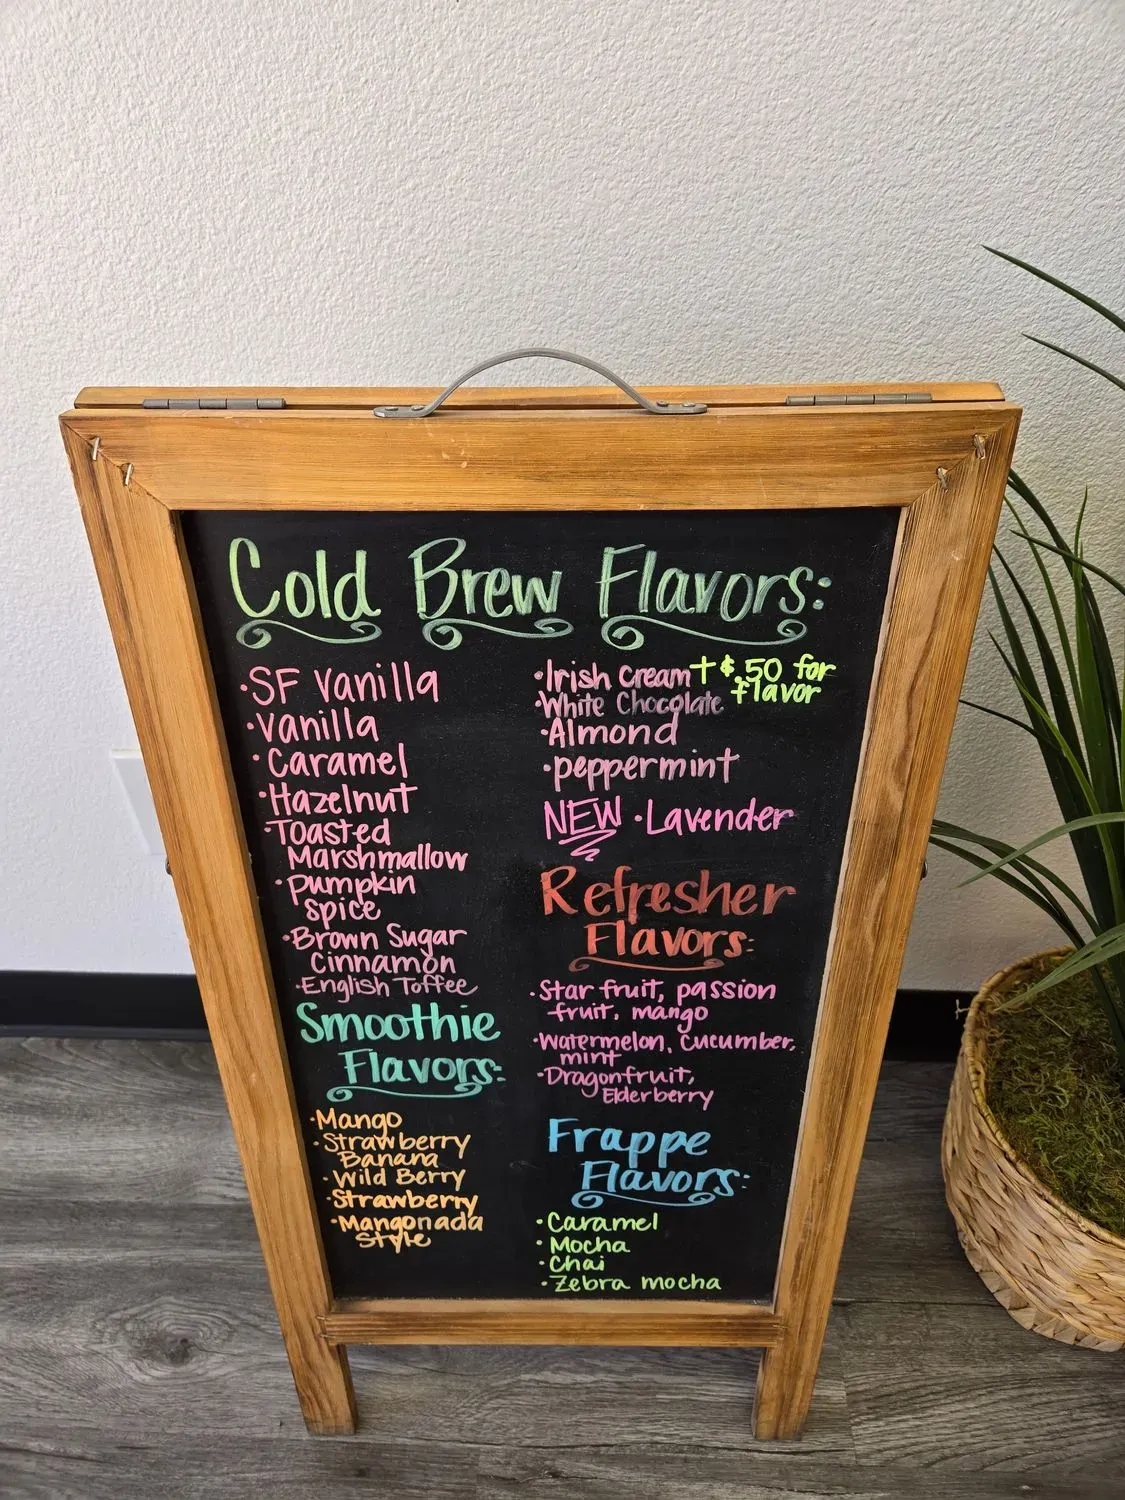 Cold Brew Flavors:
·SF Vanilla
·Vanilla
·Caramel
·Hazelnut
·Toasted
Marshmallow
·pumpkin
spice
·Brown Sugar
Cinnamon
·English Toffee
Smoothie
Flavors:
·Mango
·Strawberry
Banana
·Wild Berry
·Strawberry
·Mangonada
Style
·Irish Cream + $.50 for
flavor
·White Chocolate
·Almond
·peppermint
NEW ·Lavender
Refresher
Flavors:
·Star fruit, passion
fruit, mango
·Watermelon, Cucumber,
mint
·Dragonfruit,
Elderberry
Frappe
Flavors:
·Caramel
·Mocha
·Chai
·Zebra mocha